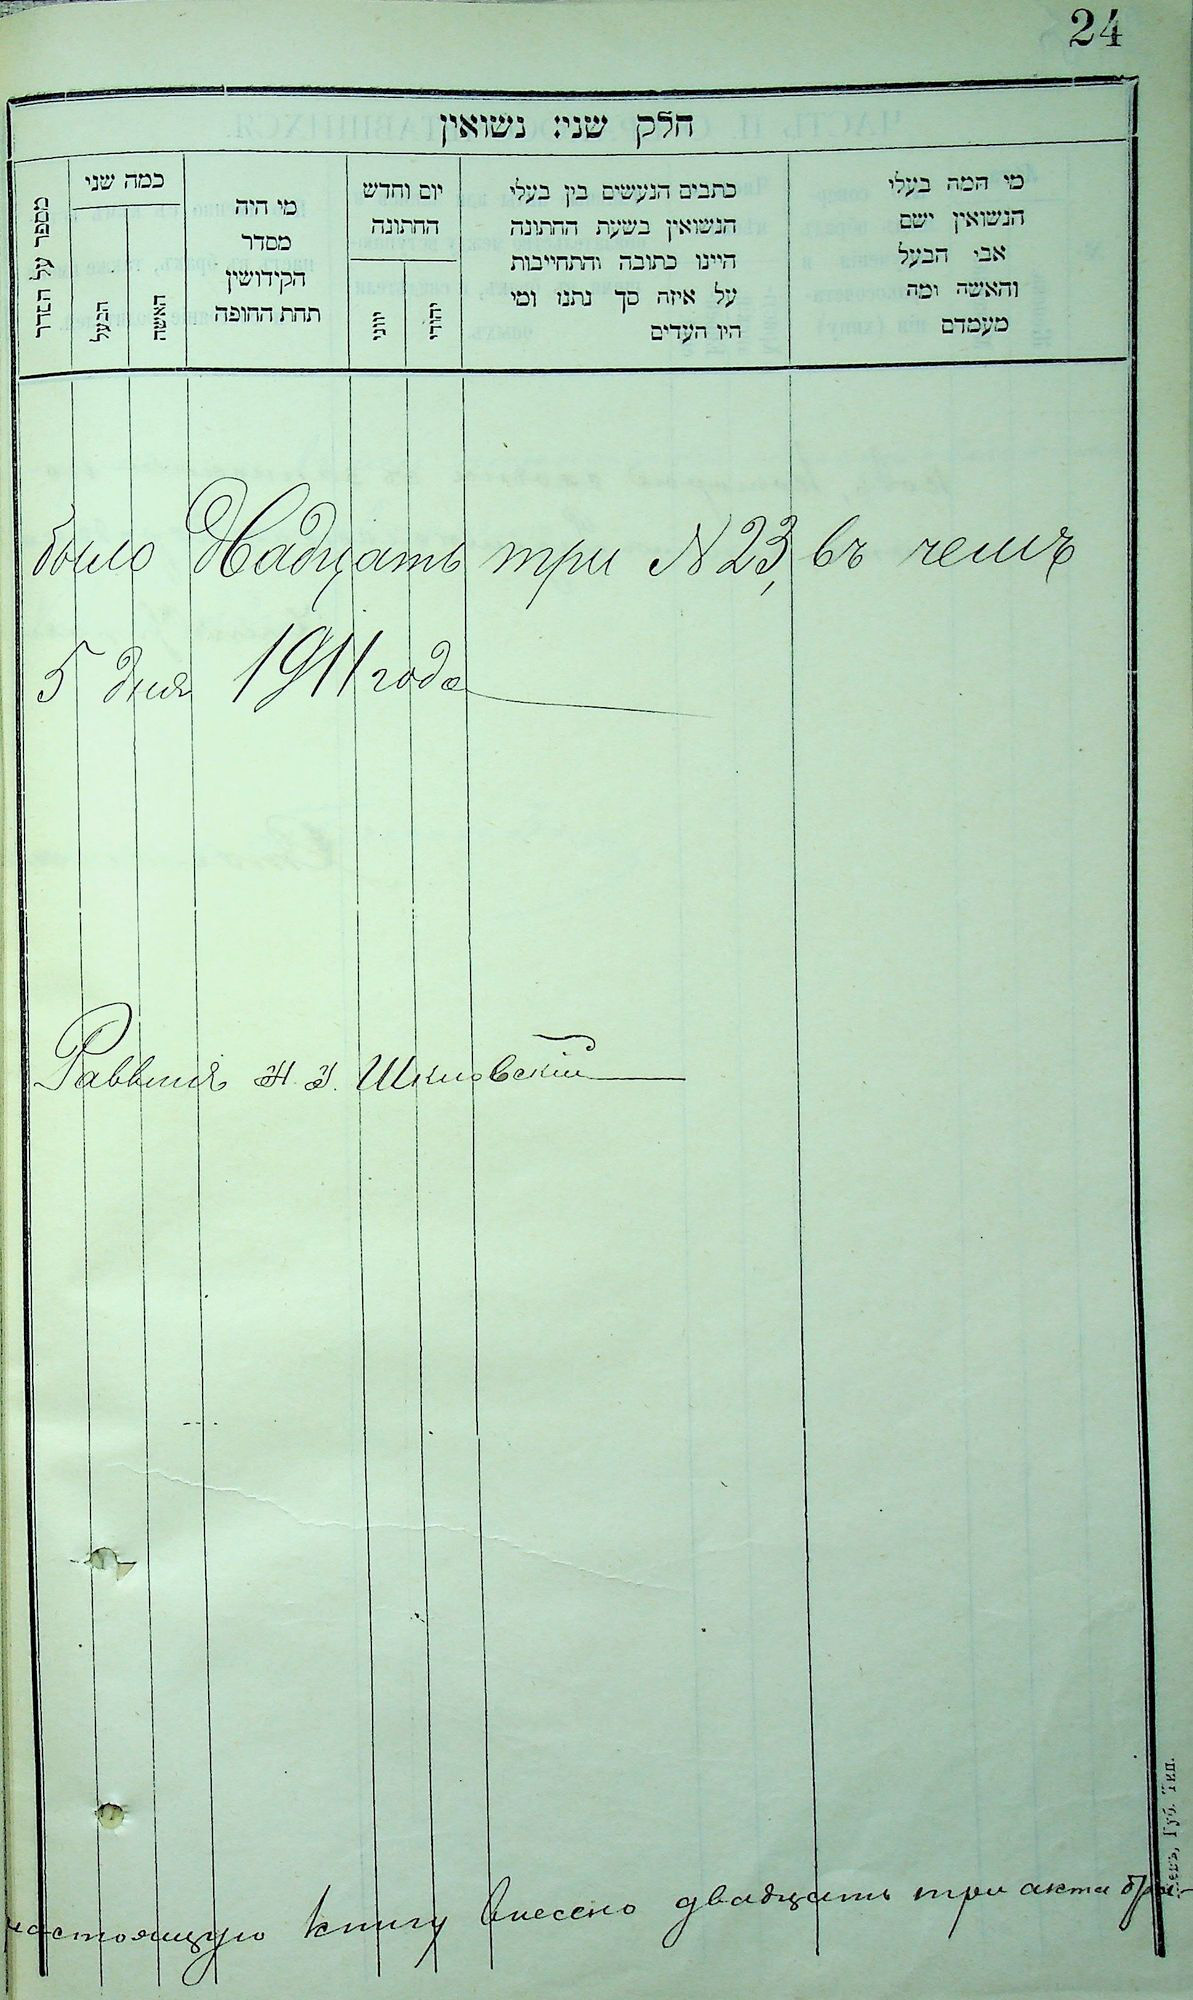 24
חלק שני: נשואין
מספר על הסדר
כמה שני
הבעל
האשה
מי היה
מסדר
הקידושין
תחת החופה
יום וחדש
החתונה
יוני
יהודי
כתבים הנעשים בין בעלי
הנשואין בשעת החתונה
היינו כתובה והתחייבות
על איזה סך נתנו ומי
היו העדים
מי המה בעלי
הנשואין ישם
אבי הבעל
והאשה ומה
מעמדם
было Двадцать три N 23, въ чемъ
5 дня 1911 года
Раввинъ Шкловскій
Губ. Тип.
настоящую книгу внесено двадцать три акта бра-